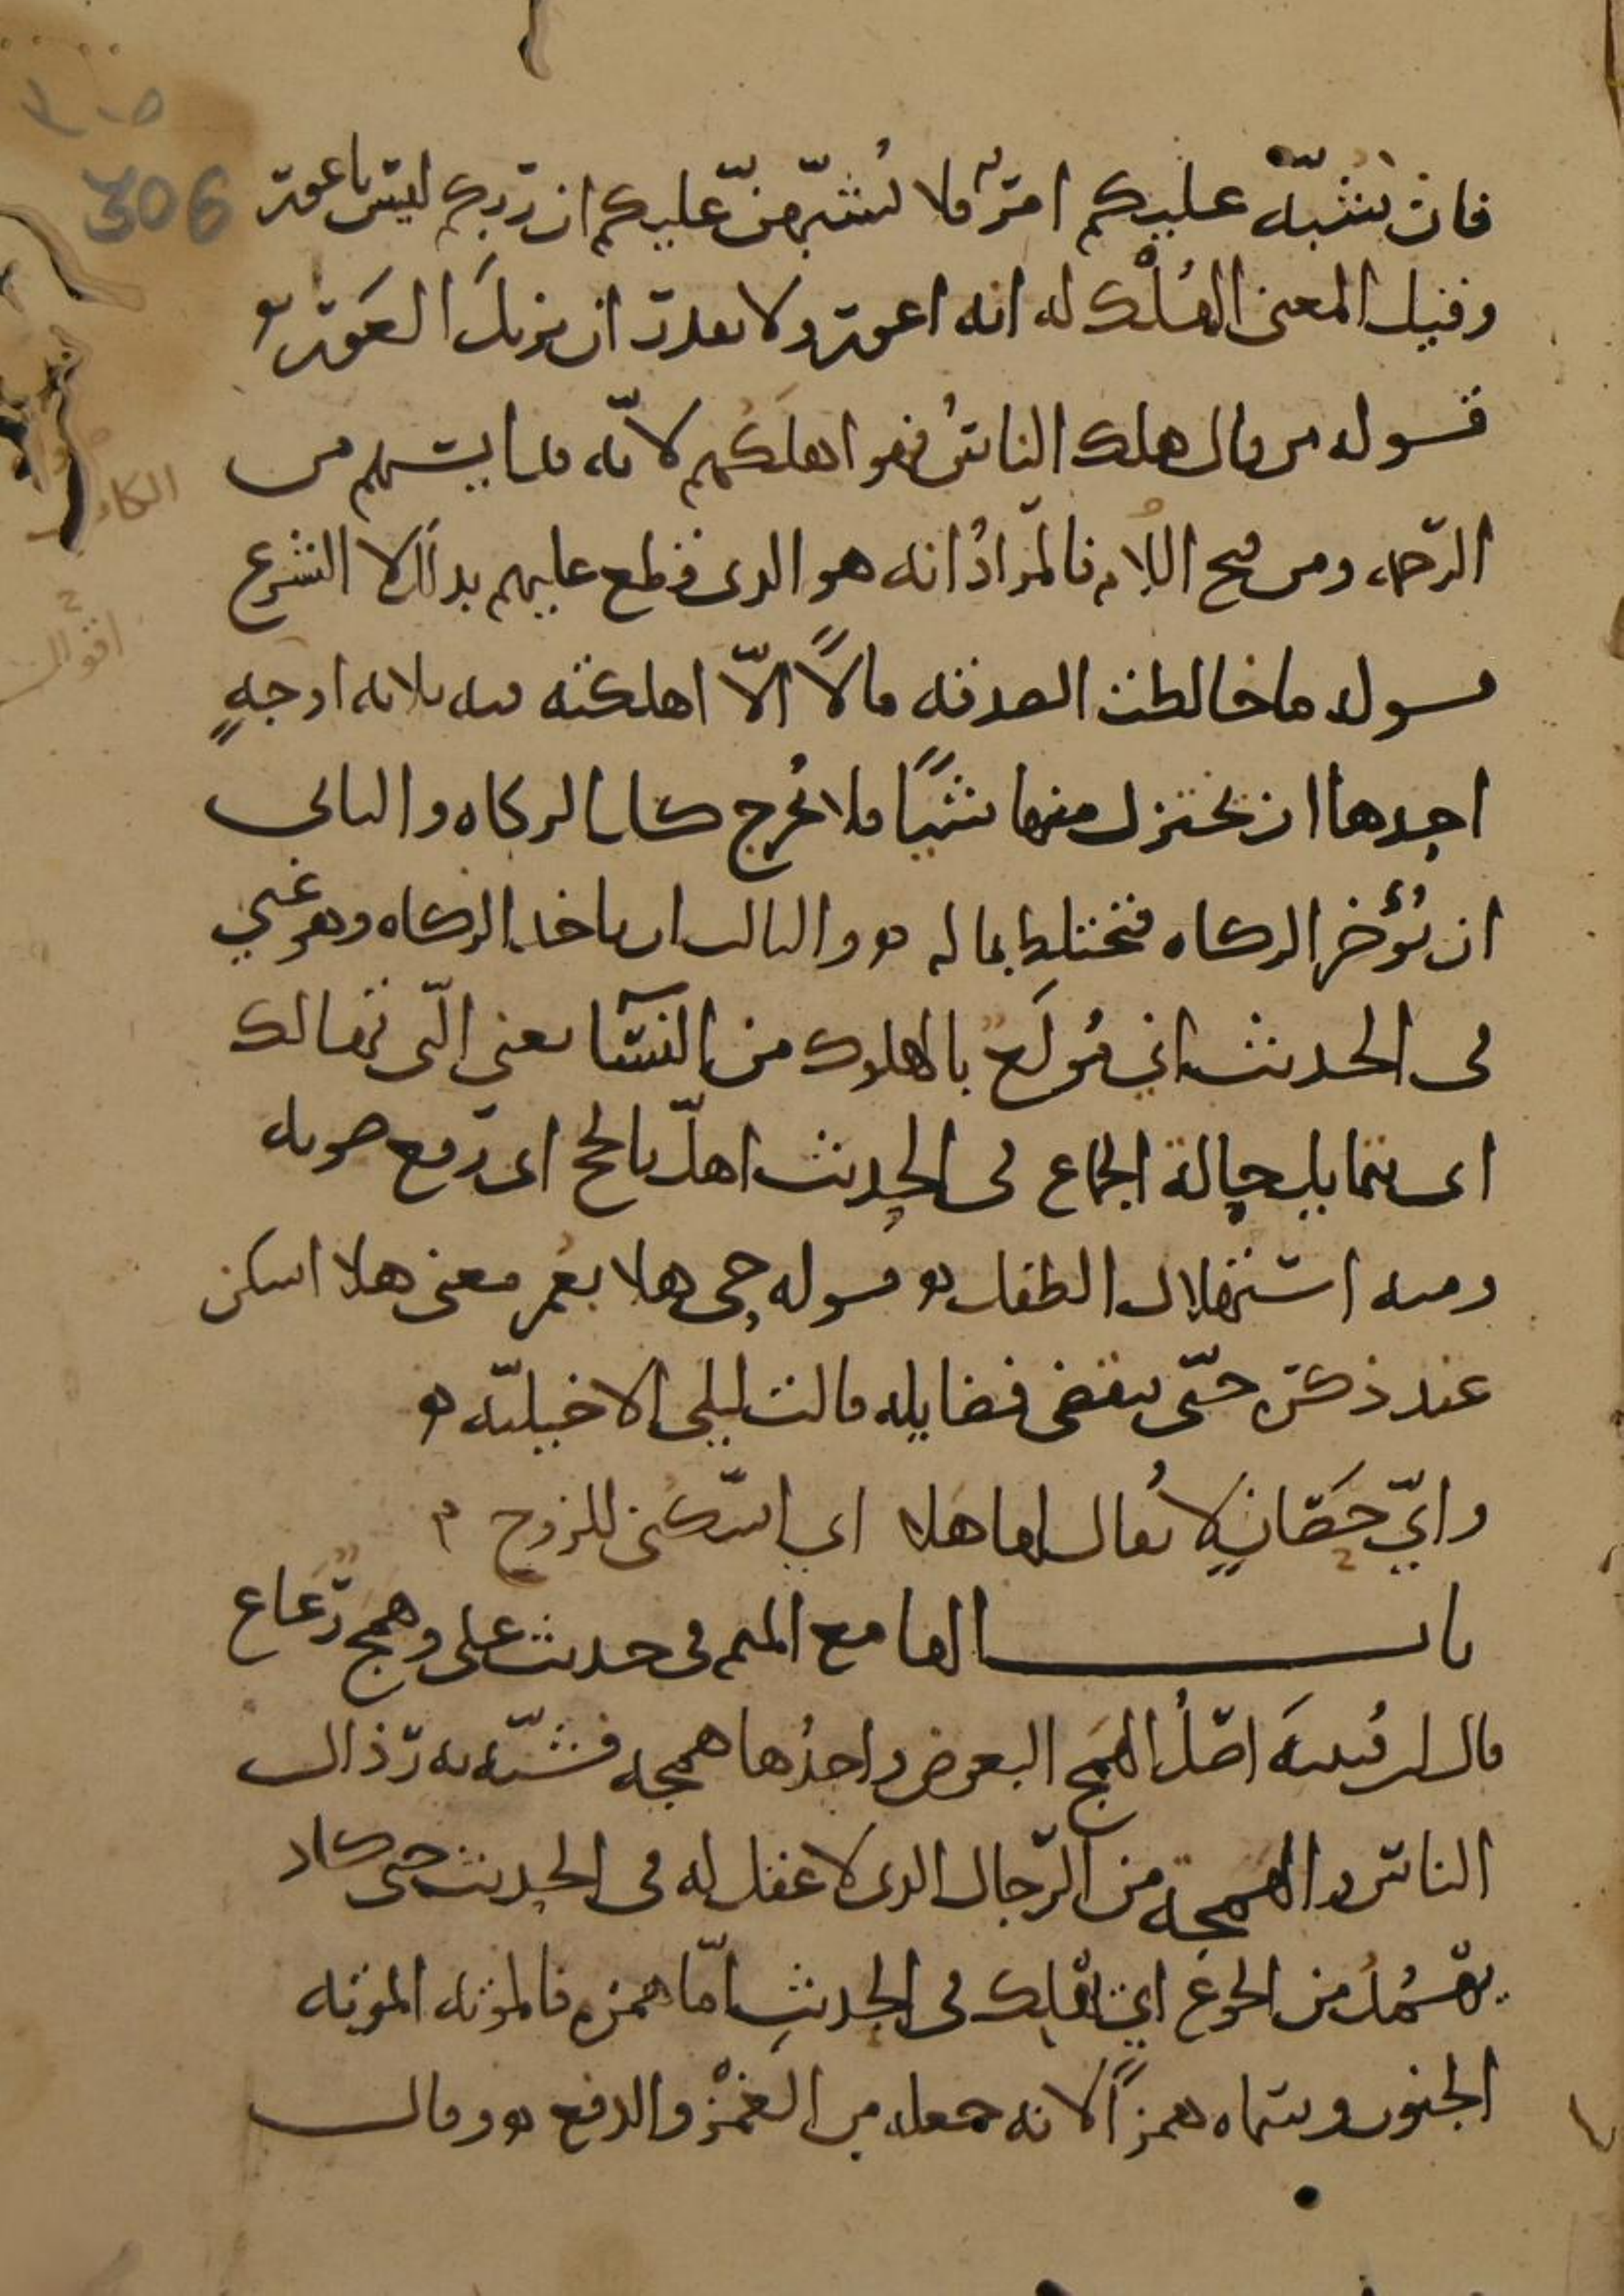 306
فان شبه عليكم امر فلا يشبهن عليكم ان ربكم ليس باعور
وقيل المعنى الهلك له انه اعور ولا يقدر ان يزيل العور
قوله من قال هلك الناس فهو اهلكهم لانه قد ايسهم من
الرحمه ومن فتح اللام فالمراد انه هو الذى قطع عليهم بذلك لا الشرع
قوله ما خالطت الصدقه مالا الا اهلكته فيه ثلاثه اوجه
احدها ان يختزل منها شيئا فلا يخرج كمال الزكاه والثانى
ان يؤخر الزكاه فتختلط بماله والثالث ان ياخذ الزكاه وهو غني
فى الحديث اني مولع بالهلوك من النسآ يعنى التى تهالك
اى تتمايل حالة الجماع فى الحديث اهل بالحج اى رفع صوته
ومنه استهلال الطفل قوله حى هلا بعمر معنى هلا اسكن
عند ذكره حتى تنقضى فضايله قالت ليلى الاخيليه
واي حصان لا يقال لها هلا اي اسكنى للزوج
باب الها مع الميم فى حديث على وهمج رعاع
قال ابن قتيبه اصل الهمج البعوض واحدها همجه فشبه به رذال
الناس والهمجه من الرجال الذى لا عقل له فى الحديث حتى كاد
يهمد من الجوع اي يهلك فى الحديث اما همزه فالموته الموته
الجنون وسماه همزا لانه جعله من الغمز والدفع وقال